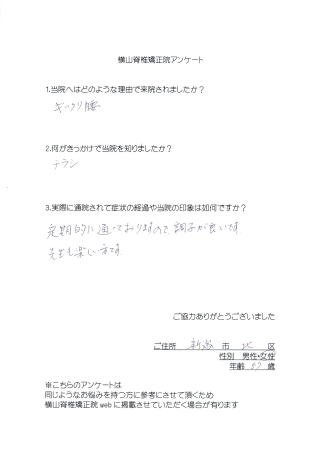 横山脊椎矯正院アンケート
1.当院へはどのような理由で来院されましたか?
ギックリ腰
2.何がきっかけで当院を知りましたか?
チラシ
3.実際に通院されて症状の経過や当院の印象は如何ですか?
定期的に通っておりますので調子が良いです
先生も楽しい方です
ご協力ありがとうございました
ご住所 新潟 市 北 区
性別 男性・女性
年齢 歳
※こちらのアンケートは
同じようなお悩みを持つ方に参考にさせて頂くため
横山脊椎矯正院 web に掲載させていただく場合が有ります